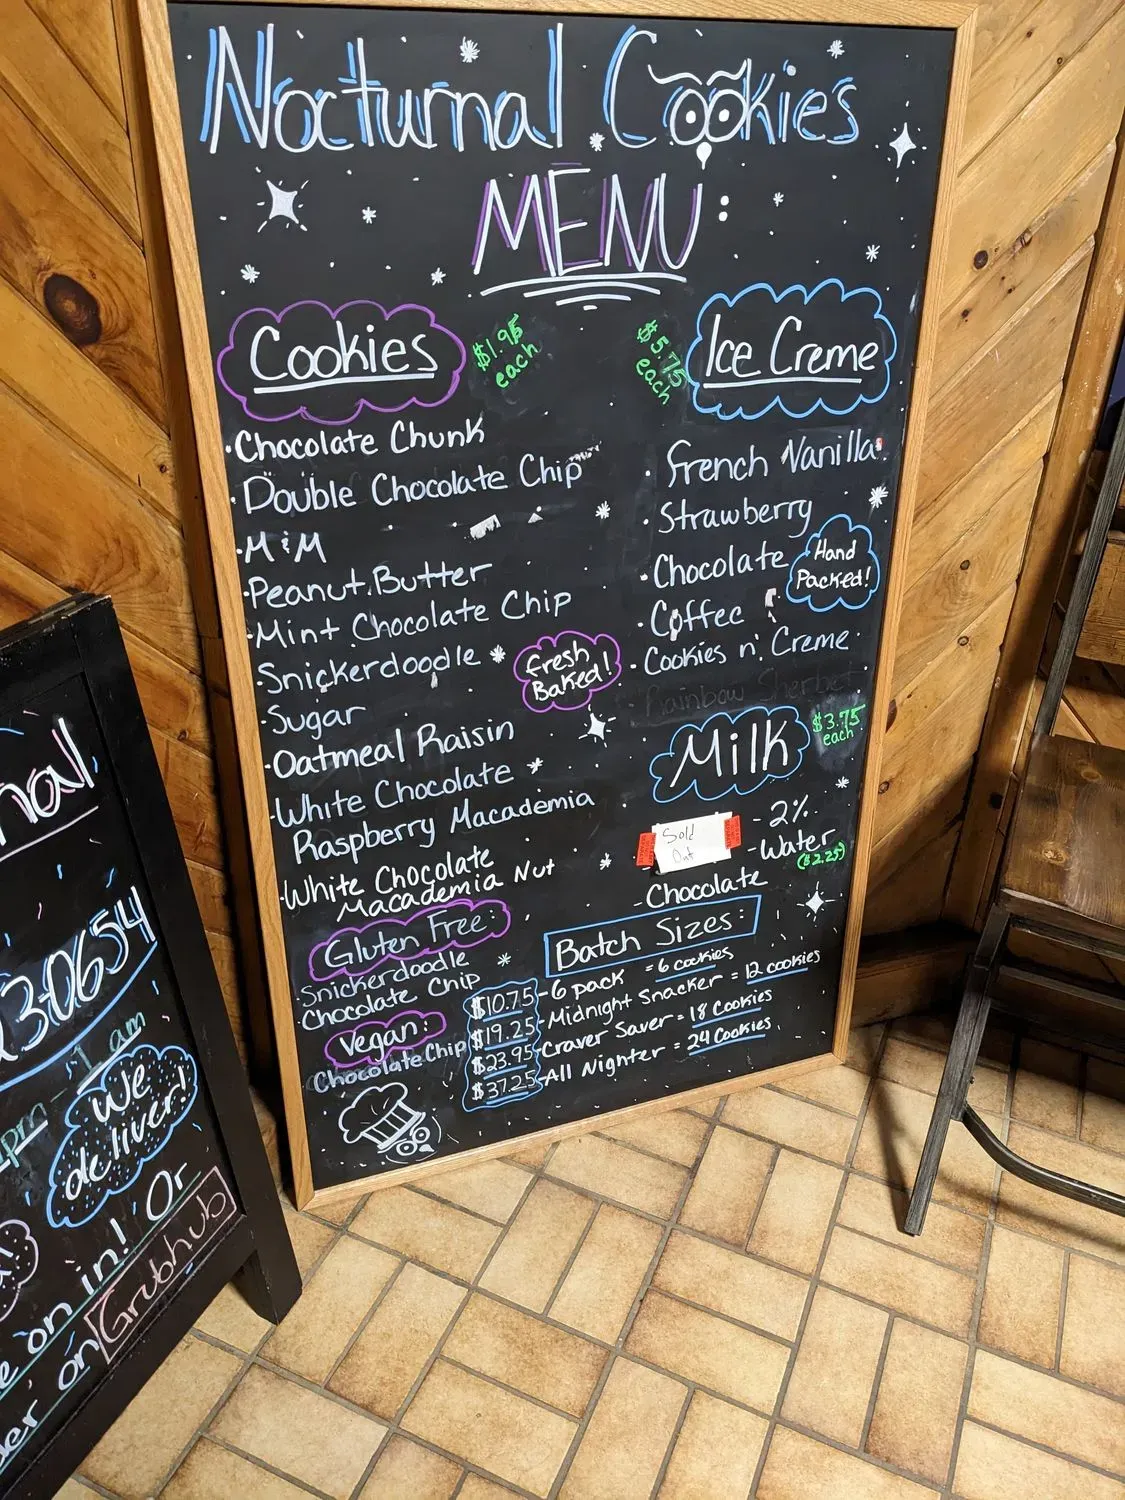 Nocturnal Cookies
MENU:
Cookies
$1.95
each
Chocolate Chunk
Double Chocolate Chip
M&M
Peanut Butter
Mint Chocolate Chip
Snickerdoodle
Sugar
Oatmeal Raisin
White Chocolate
Raspberry Macademia
White Chocolate
Macademia Nut
Fresh
Baked!
Gluten Free:
Snickerdoodle
Chocolate Chip
Vegan:
Chocolate Chip
$5.75
each
Ice Creme
French Vanilla
Strawberry
Chocolate
Coffee
Cookies n' Creme
Rainbow Sherbet
Hand
Packed!
Milk
$3.75
each
Sold
Out
- 2%
- Water
($2.25)
- Chocolate
Batch Sizes:
$10.75 - 6 pack = 6 cookies
$19.25 - Midnight Snacker = 12 cookies
$23.95 - Craver Saver = 18 Cookies
$37.25 - All Nighter = 24 Cookies
3-0654
pm - 1 am
We
deliver!
on in! Or
on Grubhub